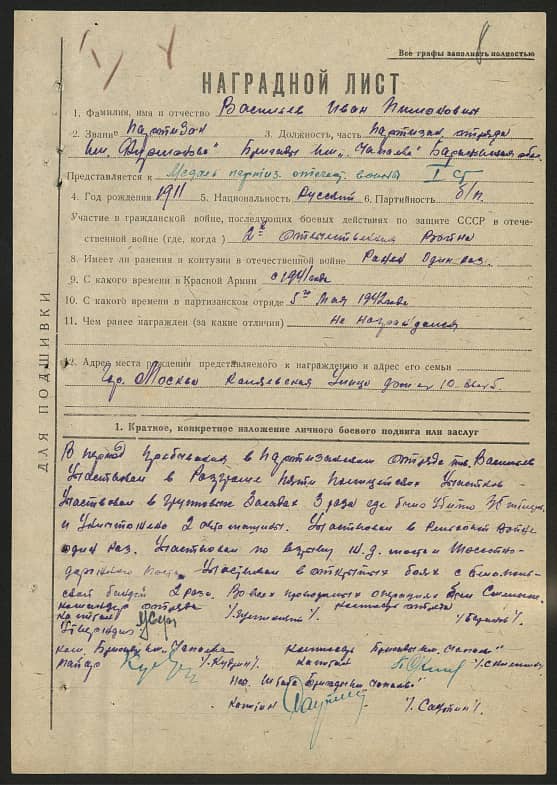 Все графы заполнять полностью
8
НАГРАДНОЙ ЛИСТ
1. Фамилия, имя и отчество Васильев Иван
2. Звание Партизан 3. Должность, часть Партизан отряда
им. „Фурманова" Бригады им. „Чапаева" Барановичская обл.
Представляется к Медаль партиз. отечеств. войны I ст
4. Год рождения 1911 5. Национальность Русский 6. Партийность б/п.
Участие в гражданской войне, последующих боевых действиях по защите СССР в отече-
ственной войне (где, когда) 2я Отечественная Война
8. Имеет ли ранения и контузии в отечественной войне Ранен Один раз.
9. С какого времени в Красной Армии с 1941 года
10. С какого времени в партизанском отряде 5го Мая 1942 года
11. Чем ранее награжден (за какие отличия) не награждался
12. Адрес места рождения представляемого к награждению и адрес его семьи
гор. Москва Каляевская Улица дом № 10
ДЛЯ ПОДШИВКИ
1. Краткое, конкретное изложение личного боевого подвига или заслуг
В период Пребывания в Партизанском отряде тов. Васильев
Участвовал в Разгроме Пяти Полицейских Участков
Участвовал в групповых Засадах 3 раза где было Убито
и Уничтожено 2 автомашины. Участвовал в Рельсовой Войне
один раз. Участвовал по взрыву ж.д. моста и Шоссей-
Участвовал в открытых боях с
бандой 2 раза. Во всех проводимых операциях был
командир отряда комиссар отряда
капитан
Утверждаю
ком. Бригады им. Чапаева комиссар Бригады им. „Чапаева"
майор /.Кудрин/. капитан
Нач. Штаба Бригады им „Чапаева"
капитан /.Саутин/.